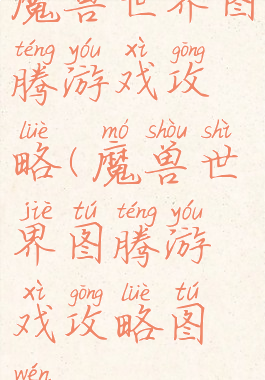 魔兽世界图
téng yóu xì gōng
腾游戏攻
lüè mó shòu shì
略(魔兽世
jiè tú téng yóu
界图腾游
xì gōng lüè tú
戏攻略图
wén